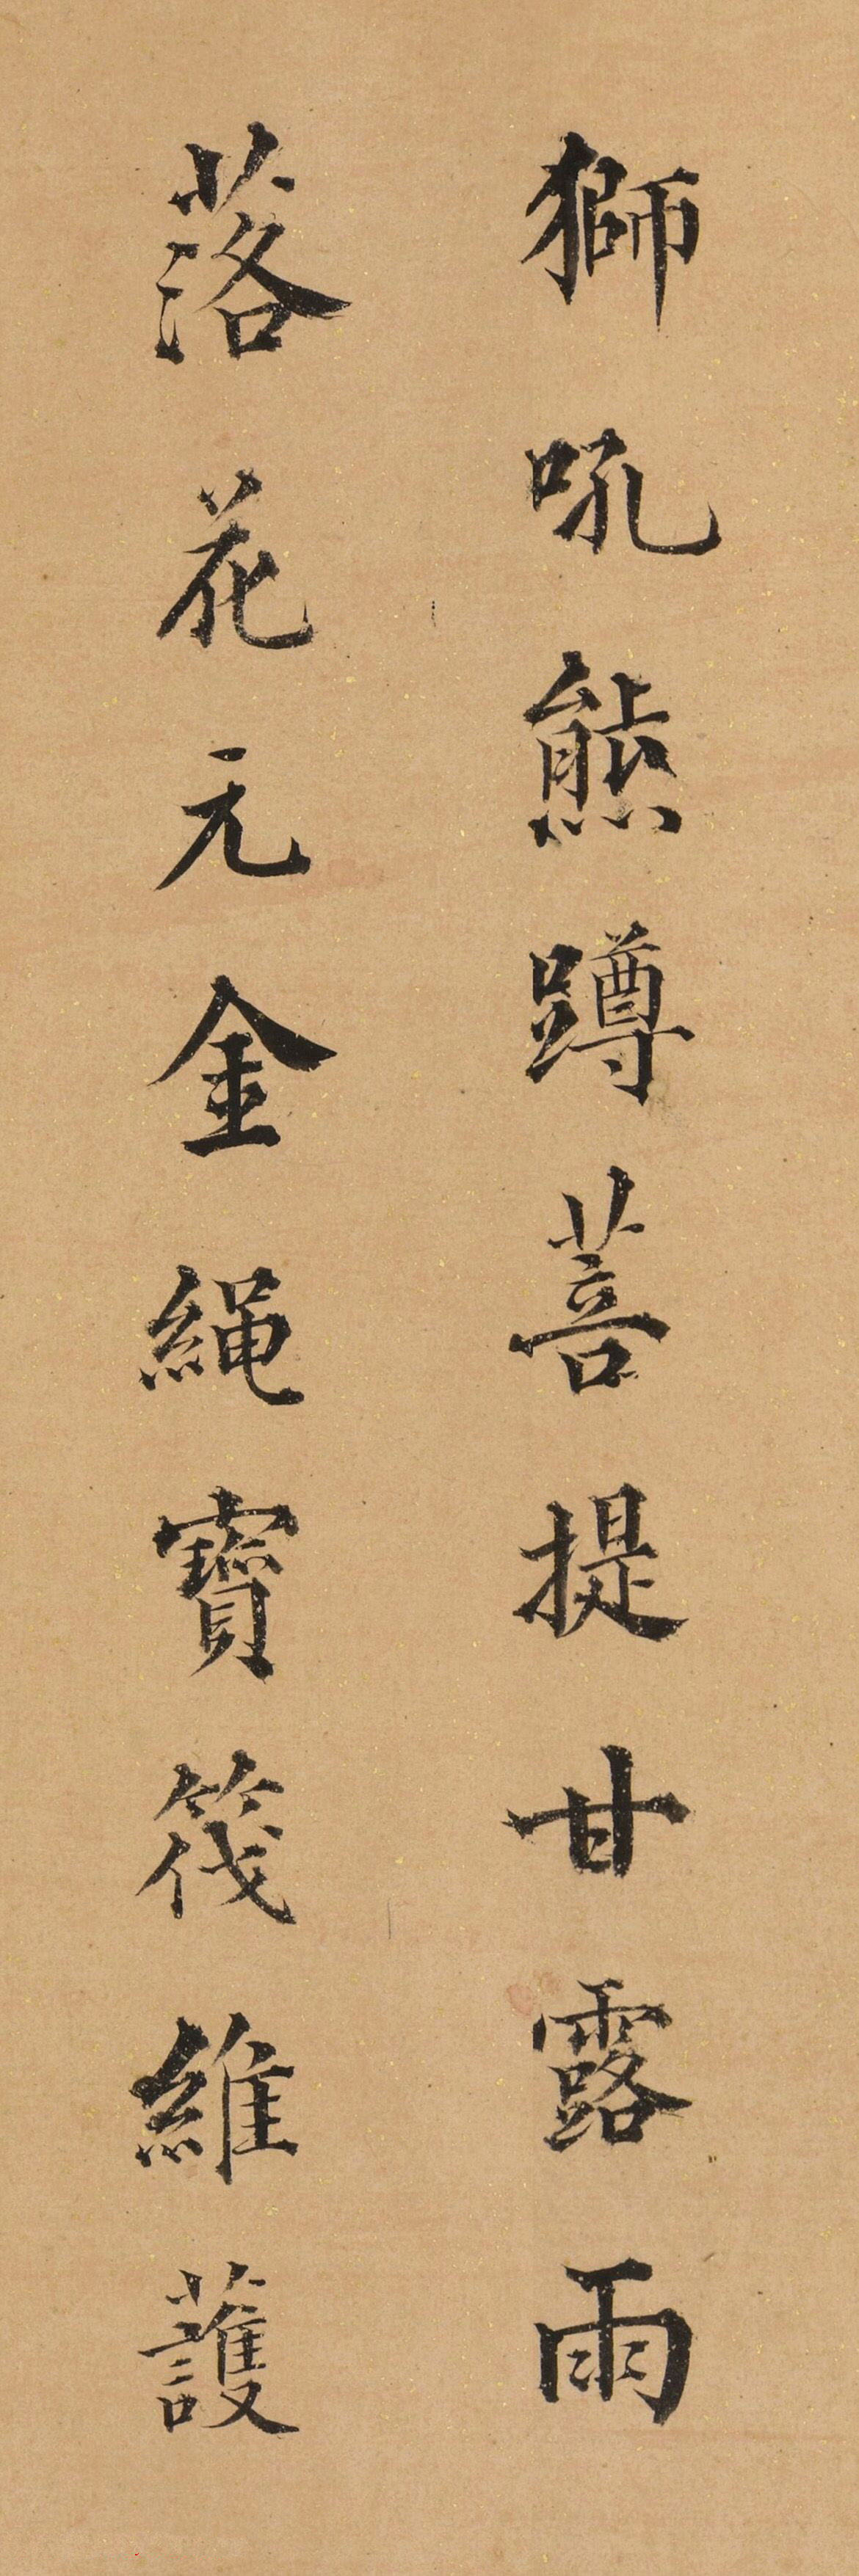 獅吼熊蹲菩提甘露雨
落花元金繩寶筏維護